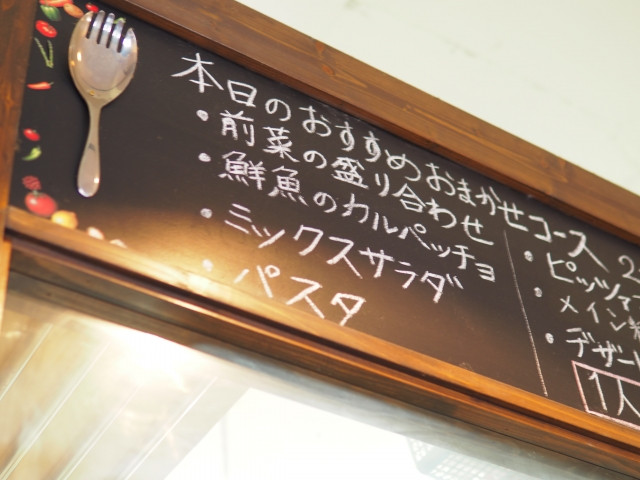 本日のおすすめおまかせコース 2
・前菜の盛り合わせ
・鮮魚のカルパッチョ
・ミックスサラダ
・パスタ
・ピッツァ
・メイン料
・デザー
1人